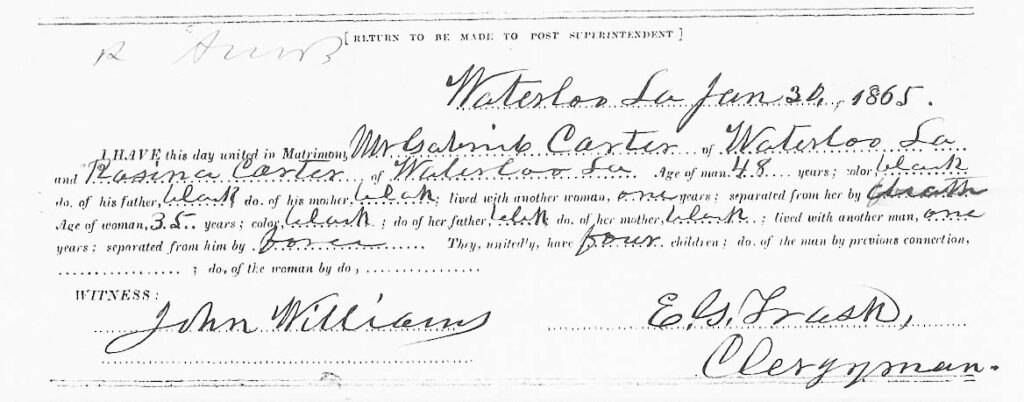 [RETURN TO BE MADE TO POST SUPERINTENDENT]
Waterloo La Jan 30, 1865.
I HAVE this day united in Matrimony, Mr Carter of Waterloo La
and Rosina Carter of Waterloo La Age of man 48 years; color, black
do. of his father, black do. of his mother, black; lived with another woman, one years; separated from her by death
Age of woman, 35 years; color, black; do of her father, black do. of her mother, black; lived with another man, one
years; separated from him by force They, unitedly, have four children; do. of the man by previous connection,
; do, of the woman by do,
WITNESS:
John Williams E. G. Trask,
Clergyman.